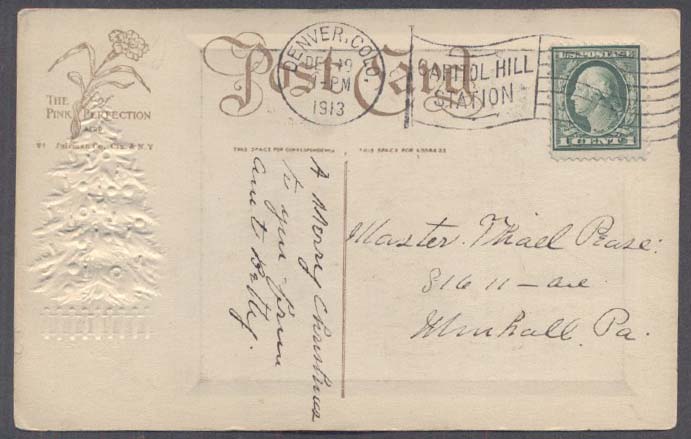 Post Card
DENVER, COLO.
DE 19
-PM
1913
CAPITOL HILL
STATION
U.S. POSTAGE
1 CENT
THE
PINK PERFECTION
Co. Cin. & N.Y
THIS SPACE FOR CORRESPONDENCE
THIS SPACE FOR ADDRESS
A Merry Christmas
to you from
aunt Betty.
Master. Pease.
816 11 - ave
Munhall. Pa.